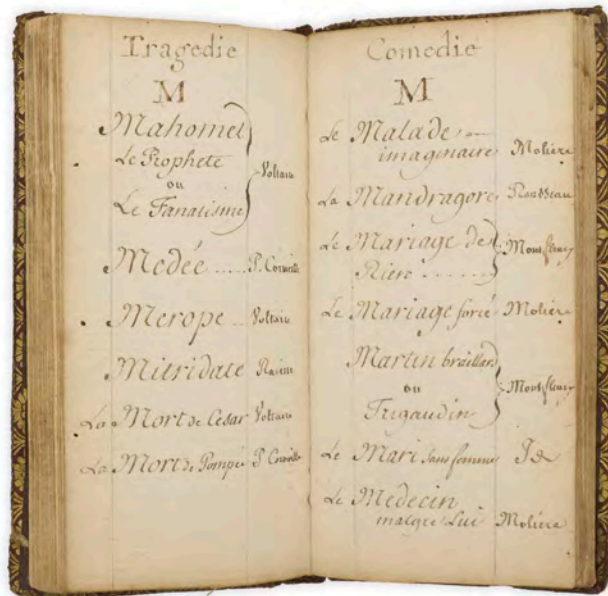 Tragedie
M
Mahomet
Le Prophete
ou
Le Fanatisme
Voltaire
Medée ..... P. Corneille
Merope .. Voltaire
Mitridate Racine
La Mort de Cesar Voltaire
La Mort de Pompé P. Corneille
Comedie
M
Le Malade
imaginaire Moliere
La Mandragore Rousseau
Le Mariage de
Rien ....... Montfleury
Le Mariage forcé Moliere
Martin braillard
ou
Trigaudin
Montfleury
Le Mari sans femme Id
Le Medecin
malgre Lui Moliere